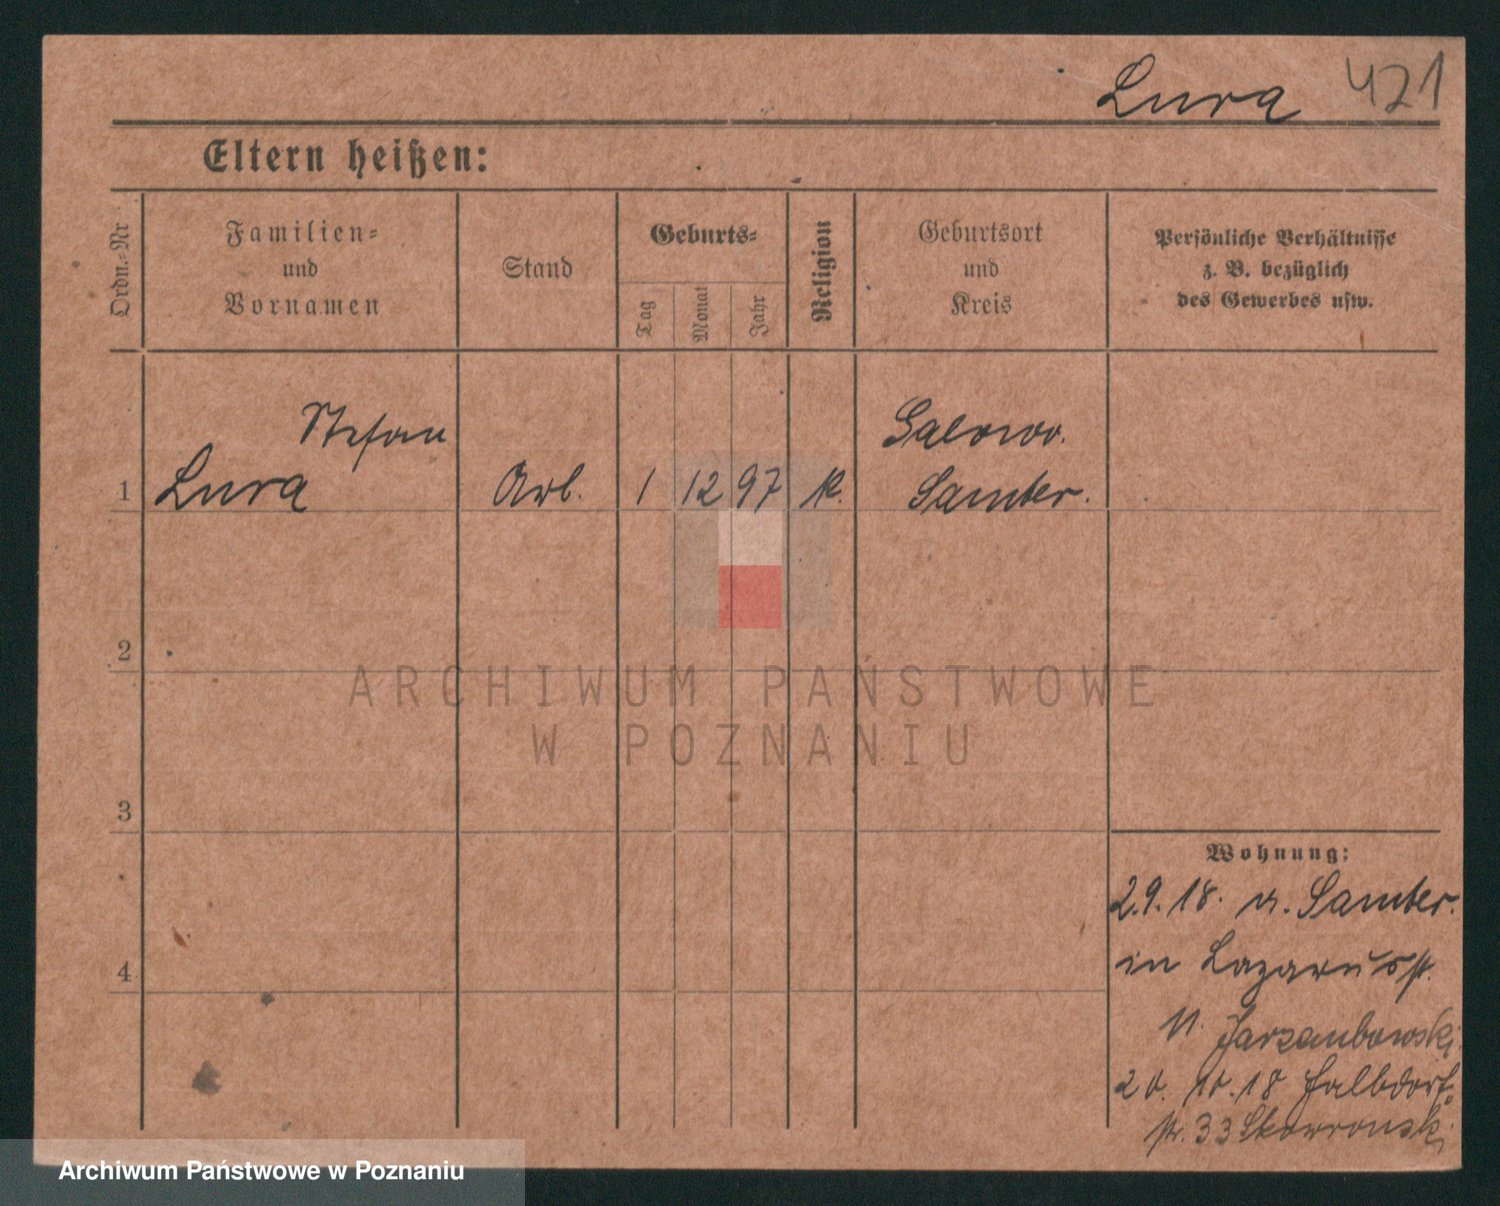 Lura 421
Eltern heißen:
Ordn.-Nr
Familien-
und
Vornamen
Stand
Geburts-
Tag
Monat
Jahr
Religion
Geburtsort
und
Kreis
Persönliche Verhältnisse
z. B. bezüglich
des Gewerbes usw.
Stefan
1 Lura Arb. 1 12 97 K.
Galowo.
Samter.
2
3
4
Wohnung:
2.9.18. v. Samter.
in Lazarusstr.
11. Jarzambowski.
20. 10. 18 Halbdorf-
str. 33 Skowronski
ARCHIWUM PAŃSTWOWE
W POZNANIU
Archiwum Państwowe w Poznaniu